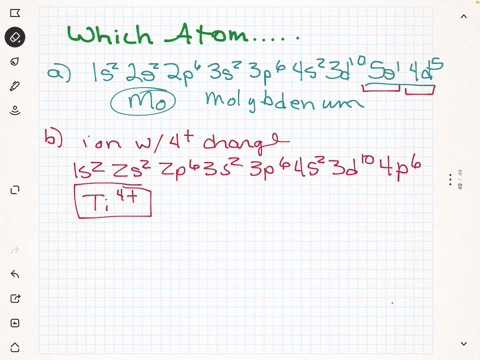 Which Atom.....
a) 1s² 2s² 2p⁶ 3s² 3p⁶ 4s² 3d¹⁰ 5s¹ 4d⁵
Mo Molybdenum
b) ion w/ 4⁺ charge
1s² 2s² 2p⁶ 3s² 3p⁶ 4s² 3d¹⁰ 4p⁶
Ti⁴⁺